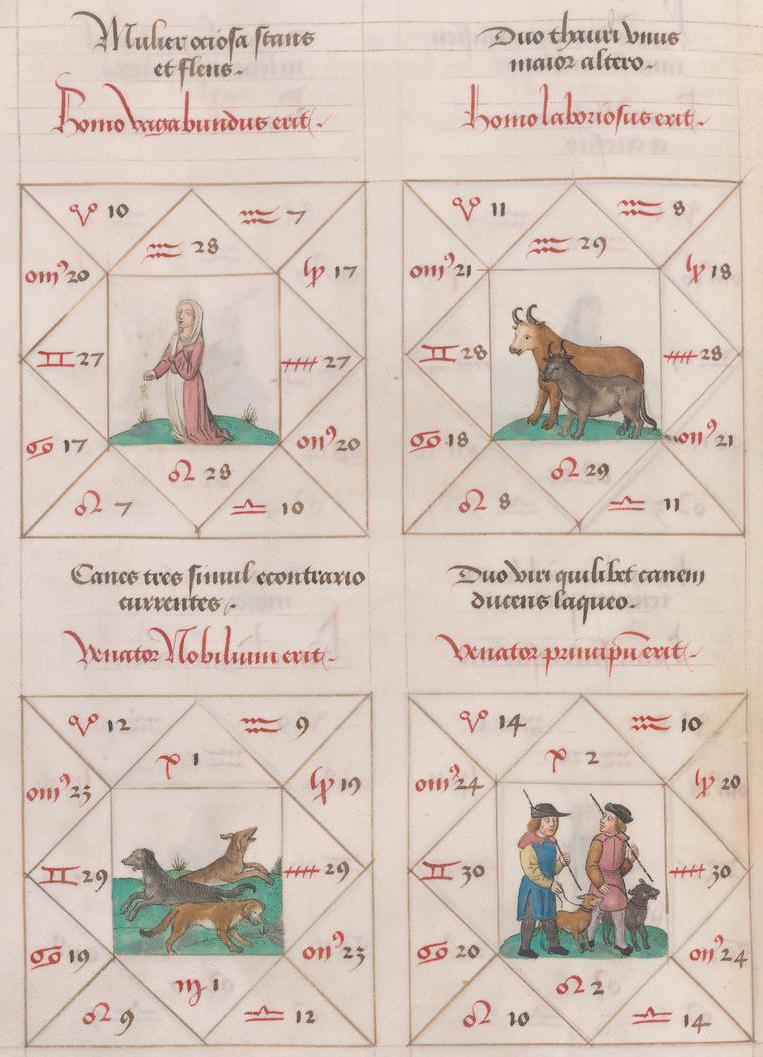 Mulier ociosa stans
et flens.
Homo vagabundus erit.
Duo thauri vnus
maior altero.
Homo laboriosus erit.
♈ 10 ♒ 7
♒ 28
20 17
♊ 27 27
♋ 17 20
♌ 28
♌ 7 ♎ 10
♈ 11 ♒ 8
♒ 29
21 18
♊ 28 28
♋ 18 21
♌ 29
♌ 8 ♎ 11
Canes tres simul econtrario
currentes.
Venator Nobilium erit.
Duo viri quilibet canem
ducens laqueo.
Venator principū erit.
♈ 12 ♒ 9
1
23 19
♊ 29 29
♋ 19 23
♍ 1
♌ 9 ♎ 12
♈ 14 ♒ 10
2
24 20
♊ 30 30
♋ 20 24
♌ 2
♌ 10 ♎ 14